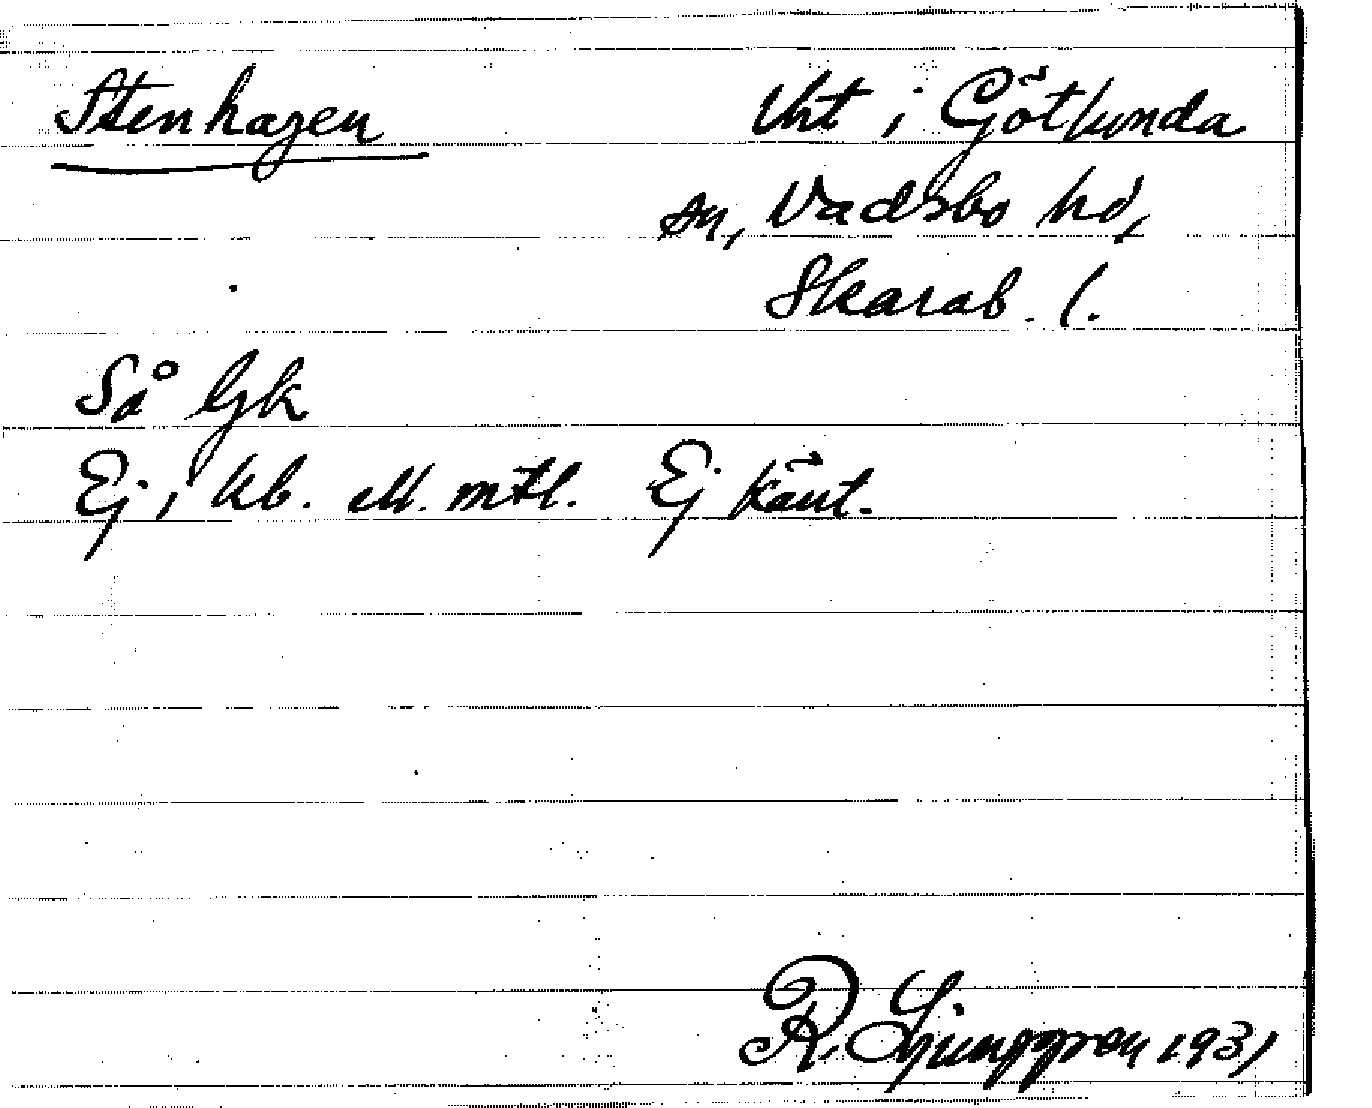 Stenhagen Uht i Götlunda
sn, Vadsbo hd,
Skarab. l.
Så Gk
Ej i kb. ell. mtl. Ej känt.
R. Ljunggren 1931